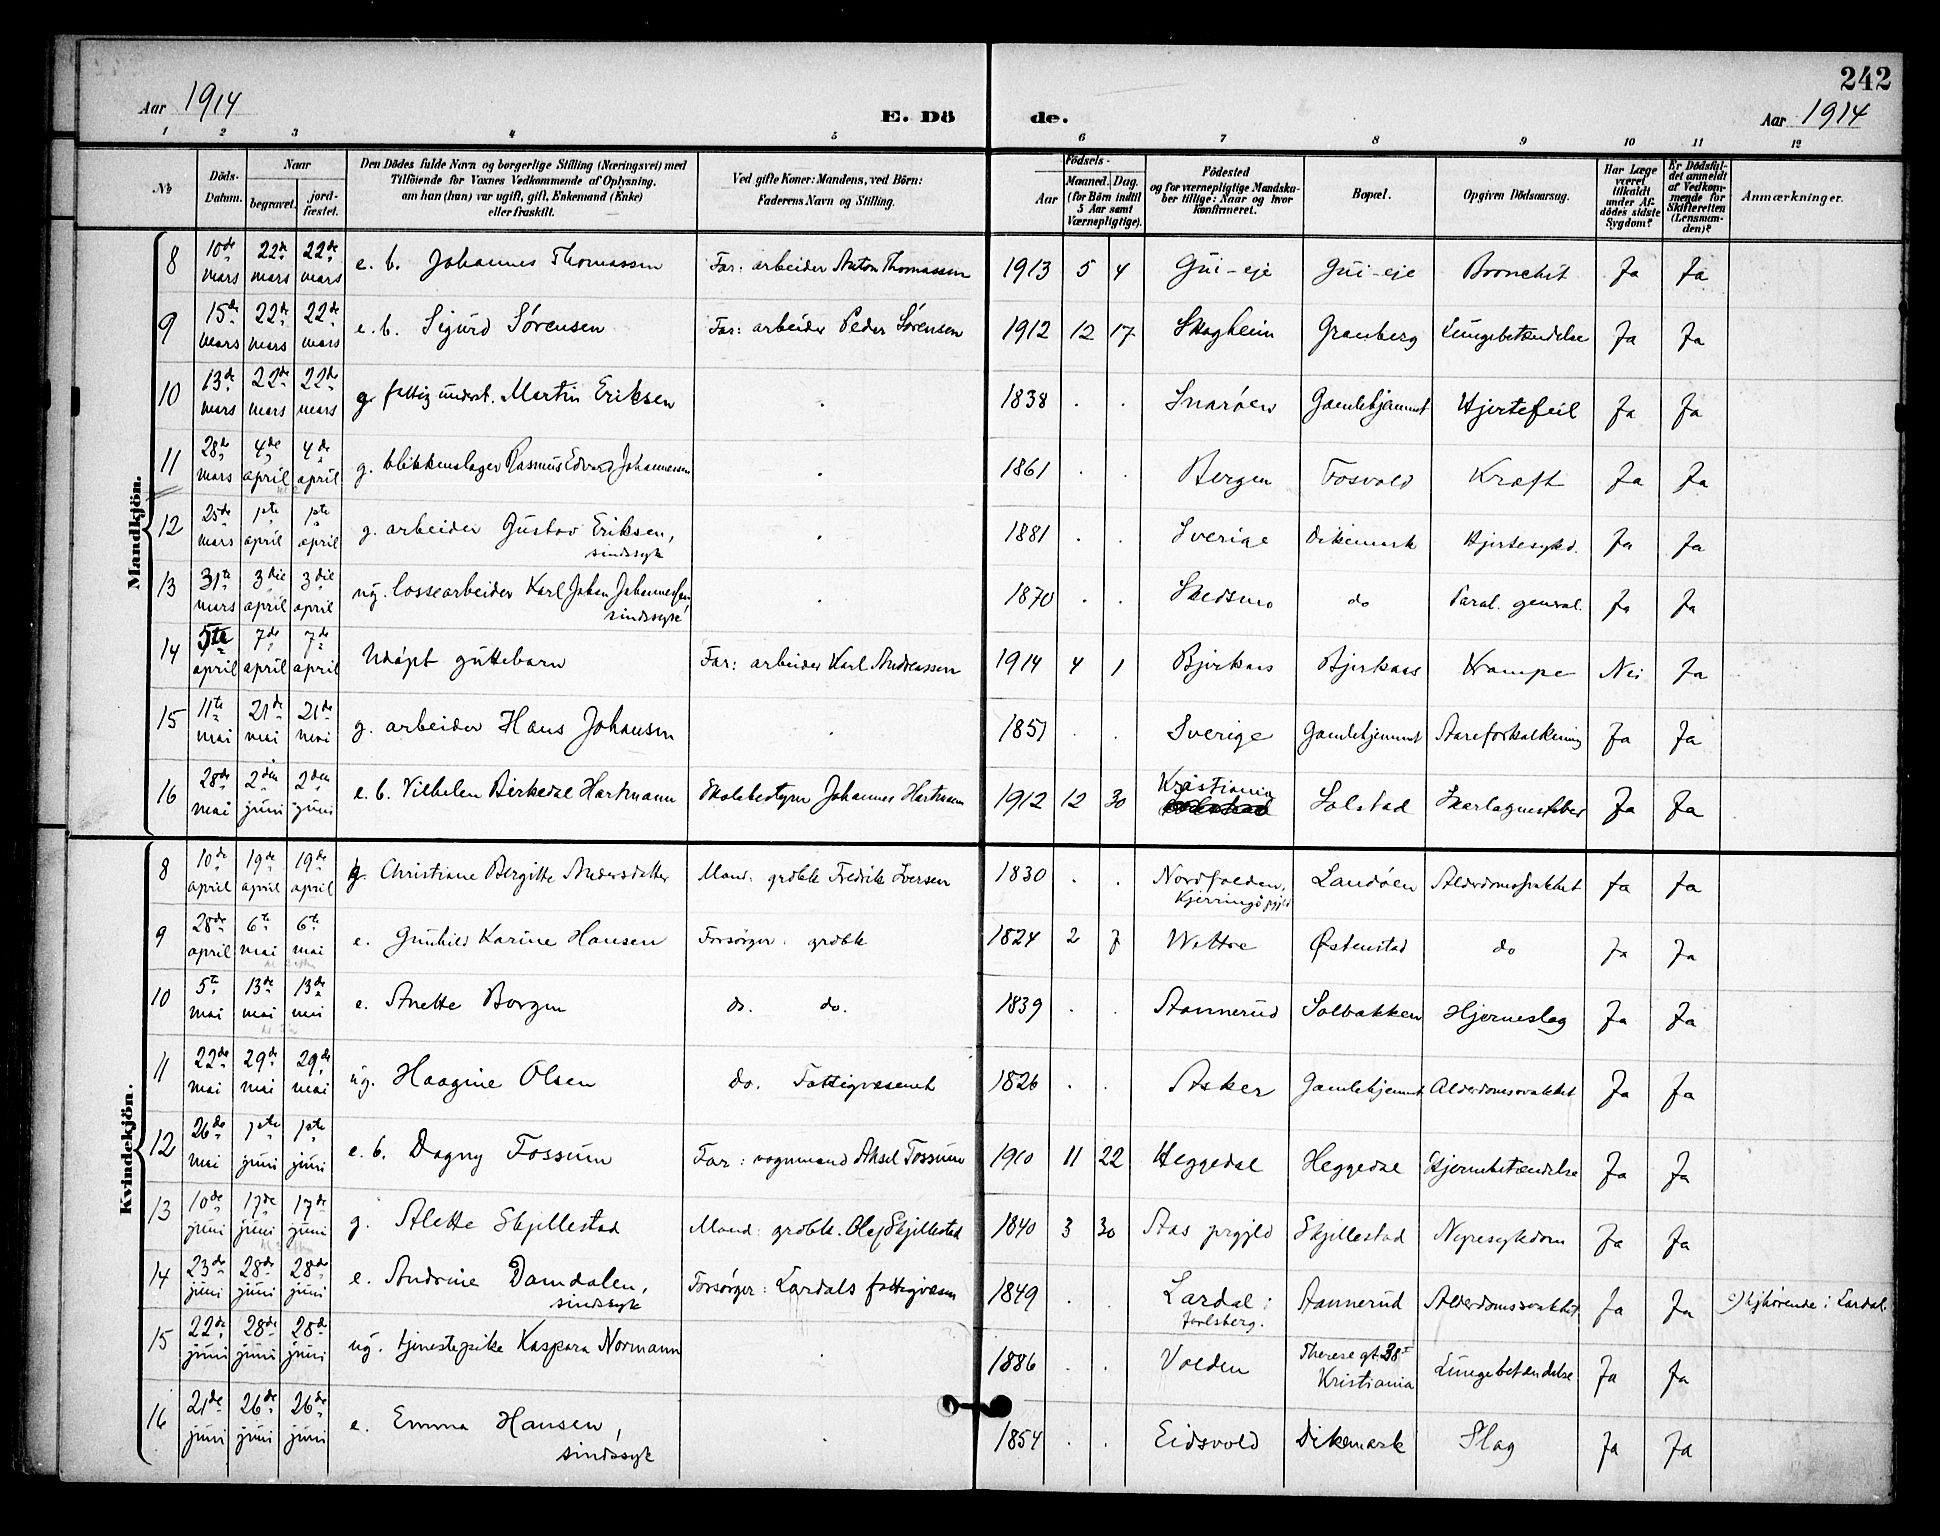 242
Aar 1914
E. Dö de.
Aar 1914
1 2 3 4 5 6 7 8 9 10 11 12
No
Döds-Datum.
Naar
begravet.
jord-fæstet.
Den Dödes fulde Navn og borgerlige Stilling (Næringsvei) med
Tilföiende for Voxnes Vedkommende af Oplysning,
om han (hun) var ugift, gift, Enkemand (Enke)
eller fraskilt.
Ved gifte Koner: Mandens, ved Börn:
Faderens Navn og Stilling.
Födsels-
Aar
Maaned. Dag.
(for Börn indtil
5 Aar samt
Værnepligtige).
Födested
og for værnepligtige Mandska-
ber tillige: Naar og hvor
konfirmeret.
Bopæl.
Opgiven Dödsaarsag.
Har Læge
været
tilkaldt
under Af-
dödes sidste
Sygdom?
Er Dödsfal-
det anmeldt
af Vedkom-
mende for
Skifteretten
(Lensman-
den)?
Anmærkninger.
Mandkjön.
8 10de mars 22de mars 22de mars e. b. Johannes Thomassen Far: arbeider Anton Thomassen 1913 5 4 Gui-eje Gui-eje Bronchit Ja Ja
9 15de mars 22de mars 22de mars e. b. Sigurd Sørensen Far: arbeider Peder Sørensen 1912 12 17 Skogheim Granberg Lungebetændelse Ja Ja
10 13de mars 22de mars 22de mars g. fattigunderst. Martin Eriksen . 1838 . . Snarøen Gamlehjemmet Hjertefeil Ja Ja
11 28de mars 4de april 4de april g. blikkenslager Rasmus Edvard Johannessen . 1861 . . Bergen Fosvold Kræft Ja Ja
12 25de mars 1ste april 1ste april g. arbeider Gustav Eriksen, . 1881 . . Sverige Dikemark Hjertesykd. Ja Ja
sindssyk
13 31te mars 3die april 3die april ug. lossearbeider Karl Johan Johannessen . 1870 . . Skedsmo do Paral. general. Ja Ja
sindssyk
14 5te april 7de april 7de april Udøpt guttebarn Far: arbeider Karl Andreassen 1914 4 1 Bjerkaas Bjerkaas Krampe Nei Ja
15 11te mai 21de mai 21de mai g. arbeider Hans Johansen . 1851 . . Sverige Gamlehjemmet Aareforkalkning Ja Ja
16 28de mai 2den juni 2den juni e. b. Vilhelm Birkedal Hartmann Skolebestyrer Johannes Hartmann 1912 12 30 Kristiania Solstad Skarlagensfeber Ja Ja
Kvindekjön.
8 10de april 19de april 19de april g. Christiane Bergitte Andersdatter Mand: grdbr. Fredrik Iversen 1830 . . Nordfolden, Landøen Alderdomssvakhet Ja Ja
Kjerringø prgjld
9 28de april 6te mai 6te mai e. Gunhild Karine Hansen Forsørger: grdbr. 1824 2 7 Wettre Østenstad do Ja Ja
10 5te mai 13de mai 13de mai e. Anette Borgen do. do. 1839 . . Aannerud Solbakken Hjerneslag Ja Ja
11 22de mai 29de mai 29de mai ug. Haagine Olsen do. Fattigvæsenet 1826 . . Asker Gamlehjemmet Alderdomssvakhet Ja Ja
12 26de mai 1ste juni 1ste juni e. b. Dagny Fossum Far: vognmand Aksel Fossum 1910 11 22 Heggedal Heggedal Hjernebetændelse Ja Ja
13 10de juni 17de juni 17de juni g. Alette Skjellestad Mand: grdbr. Olef Skjellestad 1840 3 30 Aas prgjld Skjellestad Nyresykdom Ja Ja
14 23de juni 28de juni 28de juni e. Andrine Damdalen, Forsørger: Lardals fattigvæsen 1849 . . Lardal i Aannerud Alderdomssvakhet Ja Ja hjhørende i Lardal
sindssyk Jarlsberg.
15 22de juni 28de juni 28de juni ug. tjenestepike Kaspara Normann . 1886 . . Valden Therese gt. 38 I Lungebetændelse Ja Ja
Kristiania
16 21de juni 26de juni 26de juni e. Emma Hansen, . 1854 . . Eidsvold Dikemark Slag Ja Ja
sindssyk